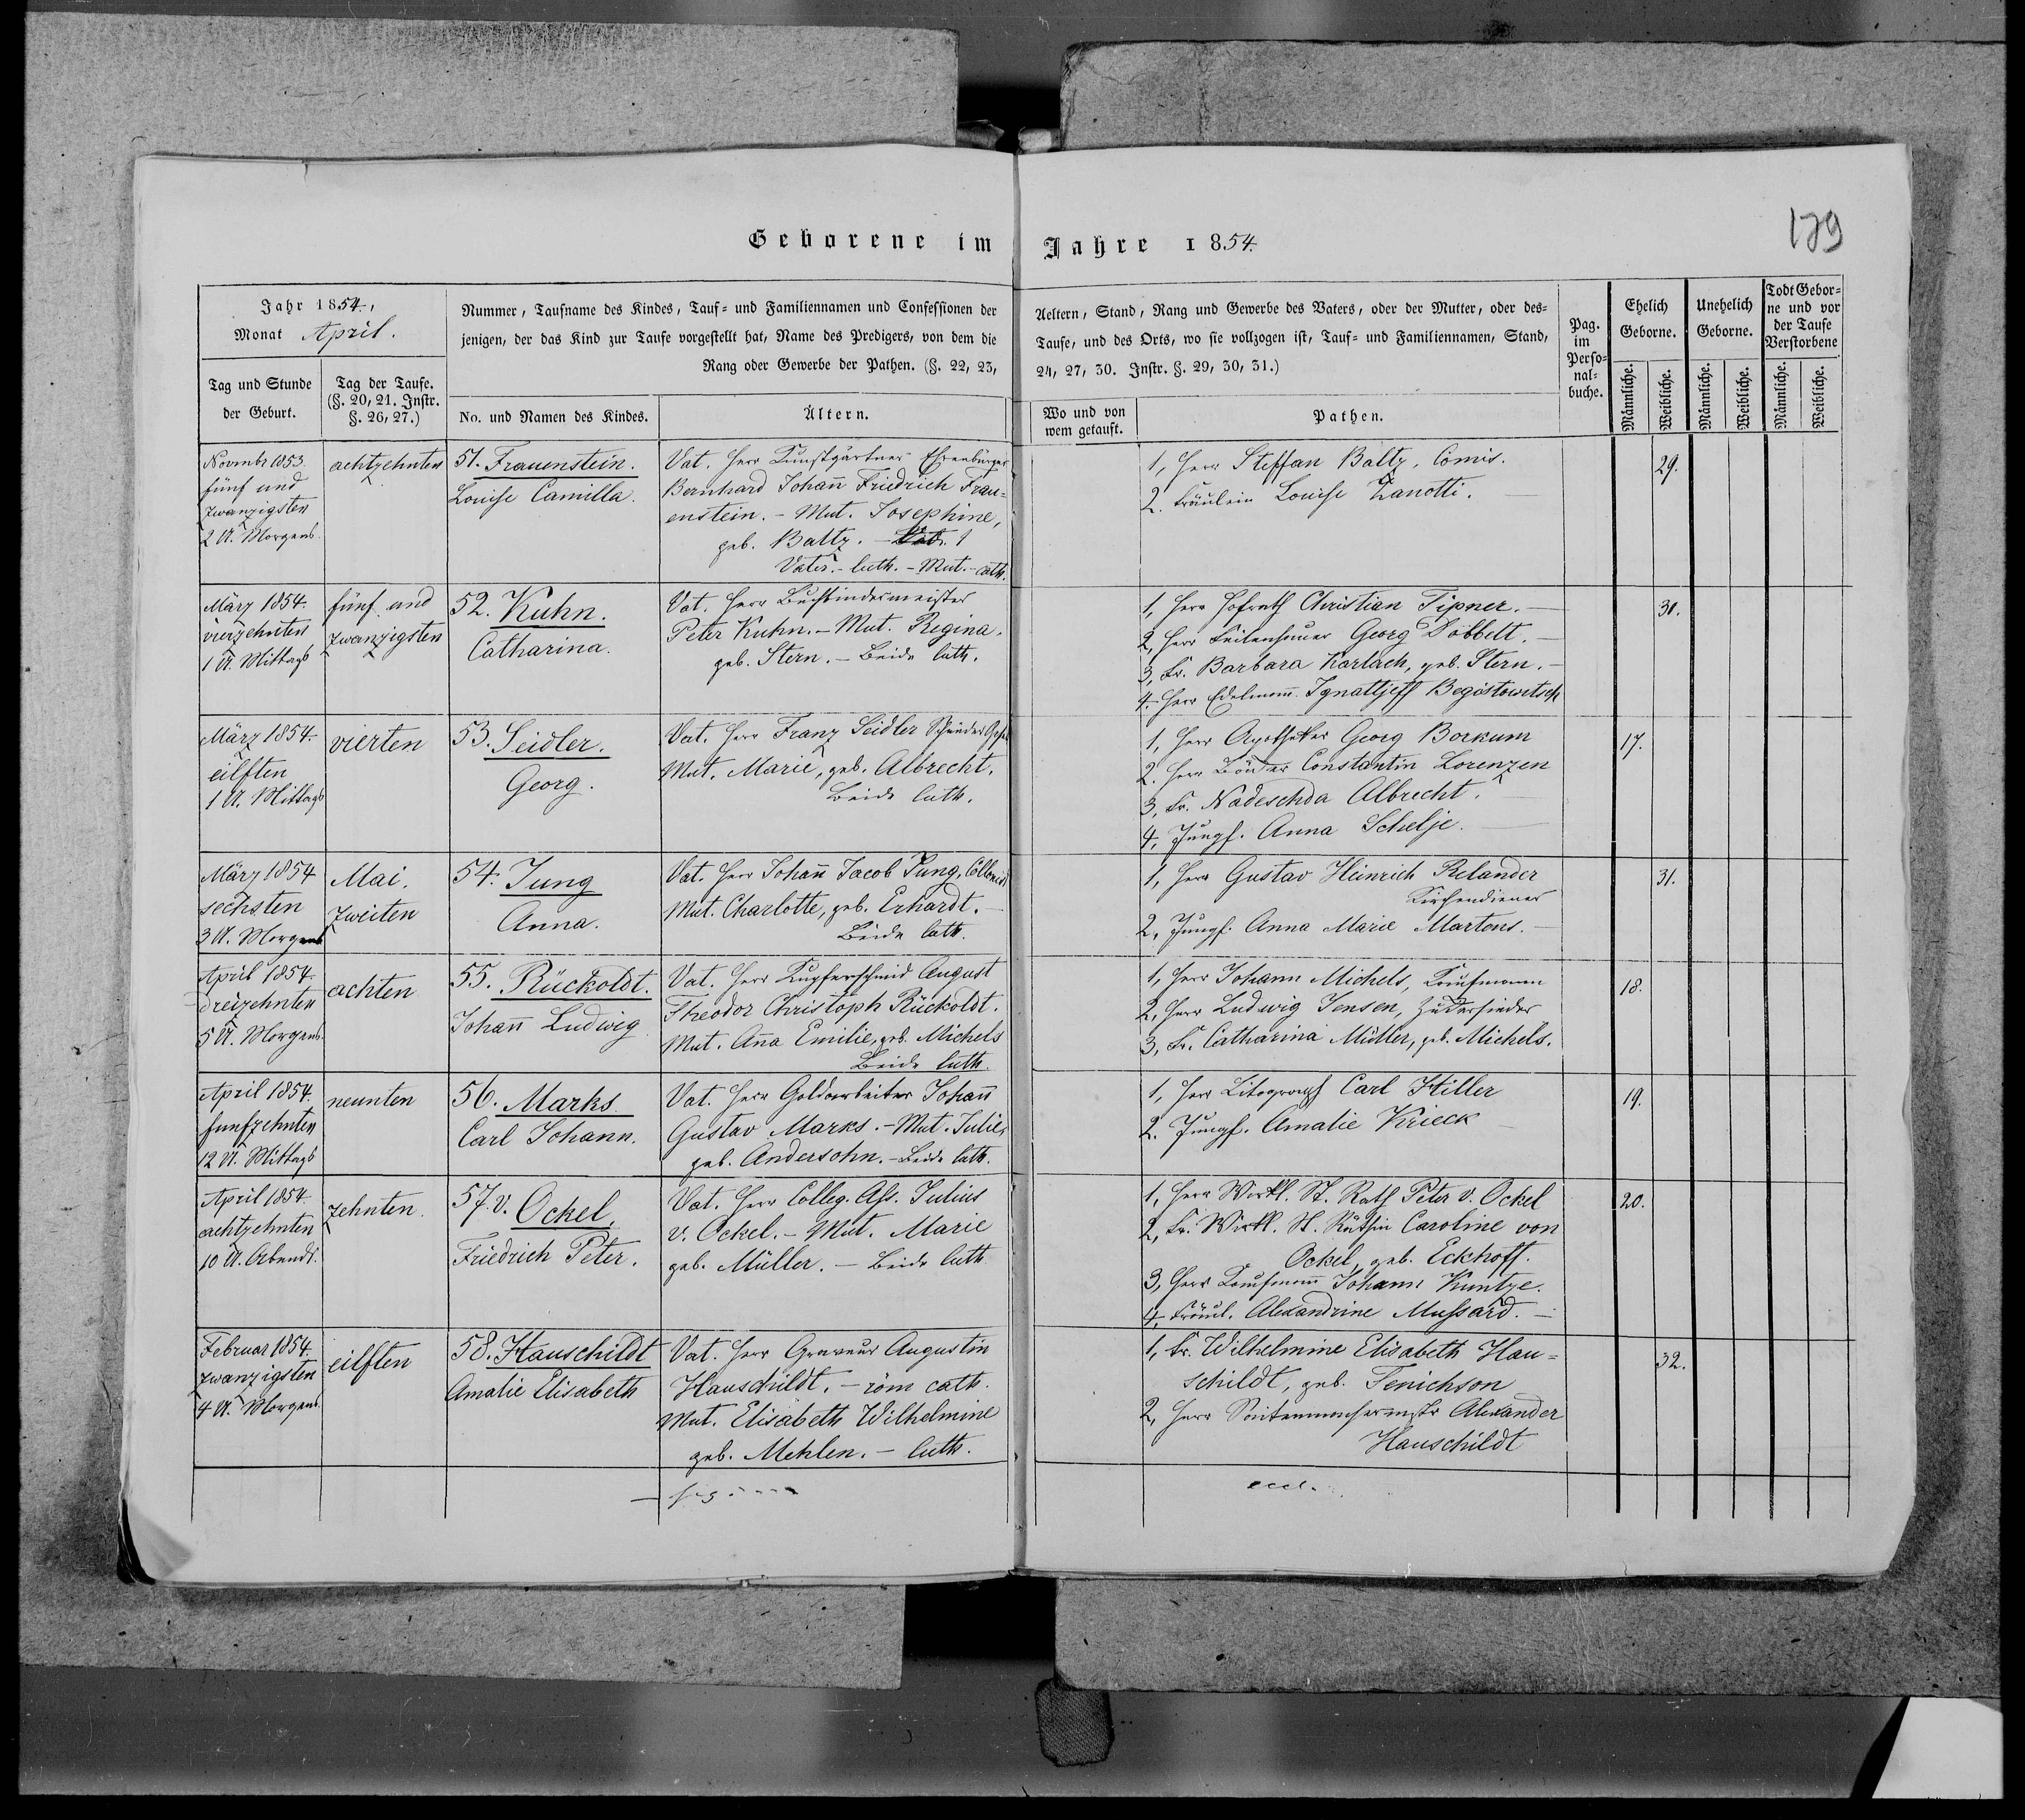 Geborene im Jahre 1854.
179
Jahr 1854.,
Monat April.
Nummer, Taufname des Kindes, Tauf- und Familiennamen und Confessionen der Aeltern, Stand, Rang und Gewerbe des Vaters, oder der Mutter, oder des-
jenigen, der das Kind zur Taufe vorgestellt hat, Name des Predigers, von dem die Taufe, und des Orts, wo sie vollzogen ist, Tauf- und Familiennamen, Stand,
Rang oder Gewerbe der Pathen. (§. 22, 23, 24, 27, 30. Instr. §. 29, 30, 31.)
Pag.
im
Perso-
nal-
buche.
Ehelich
Geborne.
Unehelich
Geborne.
Todt Gebor-
ne und vor
der Taufe
Verstorbene
Tag und Stunde
der Geburt.
Tag der Taufe.
(§. 20, 21. Instr.
§. 26, 27.)
No. und Namen des Kindes.
Ältern.
Wo und von
wem getauft.
Pathen.
Männliche.
Weibliche.
Männliche.
Weibliche.
Männliche.
Weibliche.
Novembr 1853.
fünf und
zwanzigsten
2 U. Morgens.
achtzehnten
51. Frauenstein.
Louise Camilla.
Vat. Herr Kunstgärtner Ehrenbürger
Bernhard Johan̄ Friedrich Frau-
enstein. - Mut. Josephine,
geb. Baltz. - Vat.
Vater - luth. - Mut. - cath.
1, Herr Steffan Baltz, Comis.
2. Fräulein Louise Zanotti.
29.
März 1854.
vierzehnten
1 U. Mittags
fünf und
zwanzigsten
52. Kuhn.
Catharina.
Vat. Herr Buchbindermeister
Peter Kuhn. - Mut. Regina,
geb. Stern. - Beide luth.
1, Herr Hofrath Christian Tipner.
2, Herr Feilenhauer Georg Döbbelt.
3, Fr. Barbara Korlach, geb. Stern.
4. Herr Edelman̄ Ignattjeff Begöstowitsch
30.
März 1854.
eilften
1 U. Mittags
vierten
53. Seidler.
Georg.
Vat. Herr Franz Seidler Schneider
Mut. Marie, geb. Albrecht.
Beide luth.
1, Herr Apotheker Georg Borkum
2. Herr Constantin Lorenzen
3, Fr. Nadeschda Albrecht.
4, Jungf. Anna Schelje.
17.
März 1854
sechsten
3 U. Morgens
Mai.
zweiten
54. Jung
Anna.
Vat. Herr Johan̄ Jacob Jung, Collonist
Mut. Charlotte, geb. Erhardt.
Beide luth.
1, Herr Gustav Heinrich Relander
Kirchendiener
2, Jungf. Anna Marie Martons.
31.
April 1854
dreizehnten
5 U. Morgens.
achten
55. Rückoldt.
Johan̄ Ludwig
Vat. Herr Kupferschmid August
Theodor Christoph Rückoldt.
Mut. An̄a Emilie, geb. Michels
Beide luth.
1, Herr Johann Michels, Kaufmann
2, Herr Ludwig Jensen, Zuckersieder
3, Fr. Catharina Müller, geb. Michels.
18.
April 1854.
funfzehnten
12 U. Mittags
neunten
56. Marks.
Carl Johann.
Vat. Herr Goldarbeiter Johan̄
Gustav Marks. - Mut. Julie,
geb. Andersohn. - Beide luth.
1, Herr Litograph Carl Hiller
2. Jungf. Amalie Krieck
19.
April 1854.
achtzehnten
10 U. Abends.
zehnten.
57. v. Ockel,
Friedrich Peter.
Vat. Herr Colleg. Ass. Julius
v. Ockel. - Mut. Marie
geb. Müller. - Beide luth.
1, Herr Wirkl. St. Rath Peter v. Ockel
2, Fr. Wirkl. St. Räthin Caroline von
Ockel, geb. Eckhoff.
3, Herr Kaufman̄ Johann Kuntze.
4, Fräul. Alexandrine Mussard.
20.
Februar 1854.
zwanzigsten
4 U. Morgens.
eilften
58. Hauschildt
Amalie Elisabeth
Vat. Herr Graveur Augustin
Hauschildt. - röm cath.
Mut. Elisabeth Wilhelmine
geb. Mehlen. - luth.
1, Fr. Wilhelmine Elisabeth Hau-
schildt, geb. Fenichson
2, Herr Alexander
Hauschildt
32.